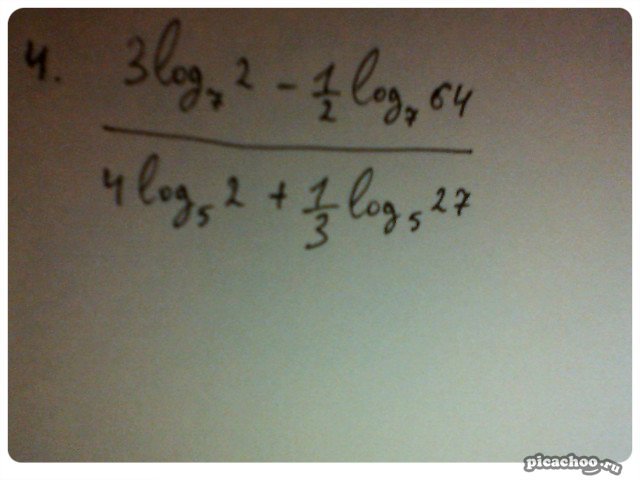 4. 3log₇2 - 1/2 log₇64
4log₅2 + 1/3 log₅27
picachoo.ru